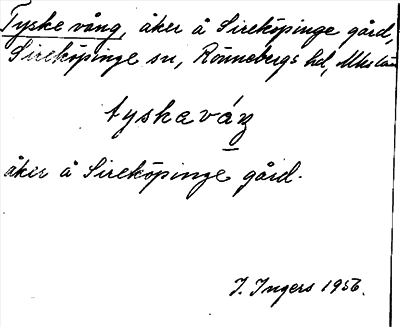 Tyske vång, åker å Sireköpinge gård,
Sireköpinge sn, Rönnebergs hd, Mlms län
tyskaváŋ
åker å Sireköpinge gård.
I. Ingers 1956.